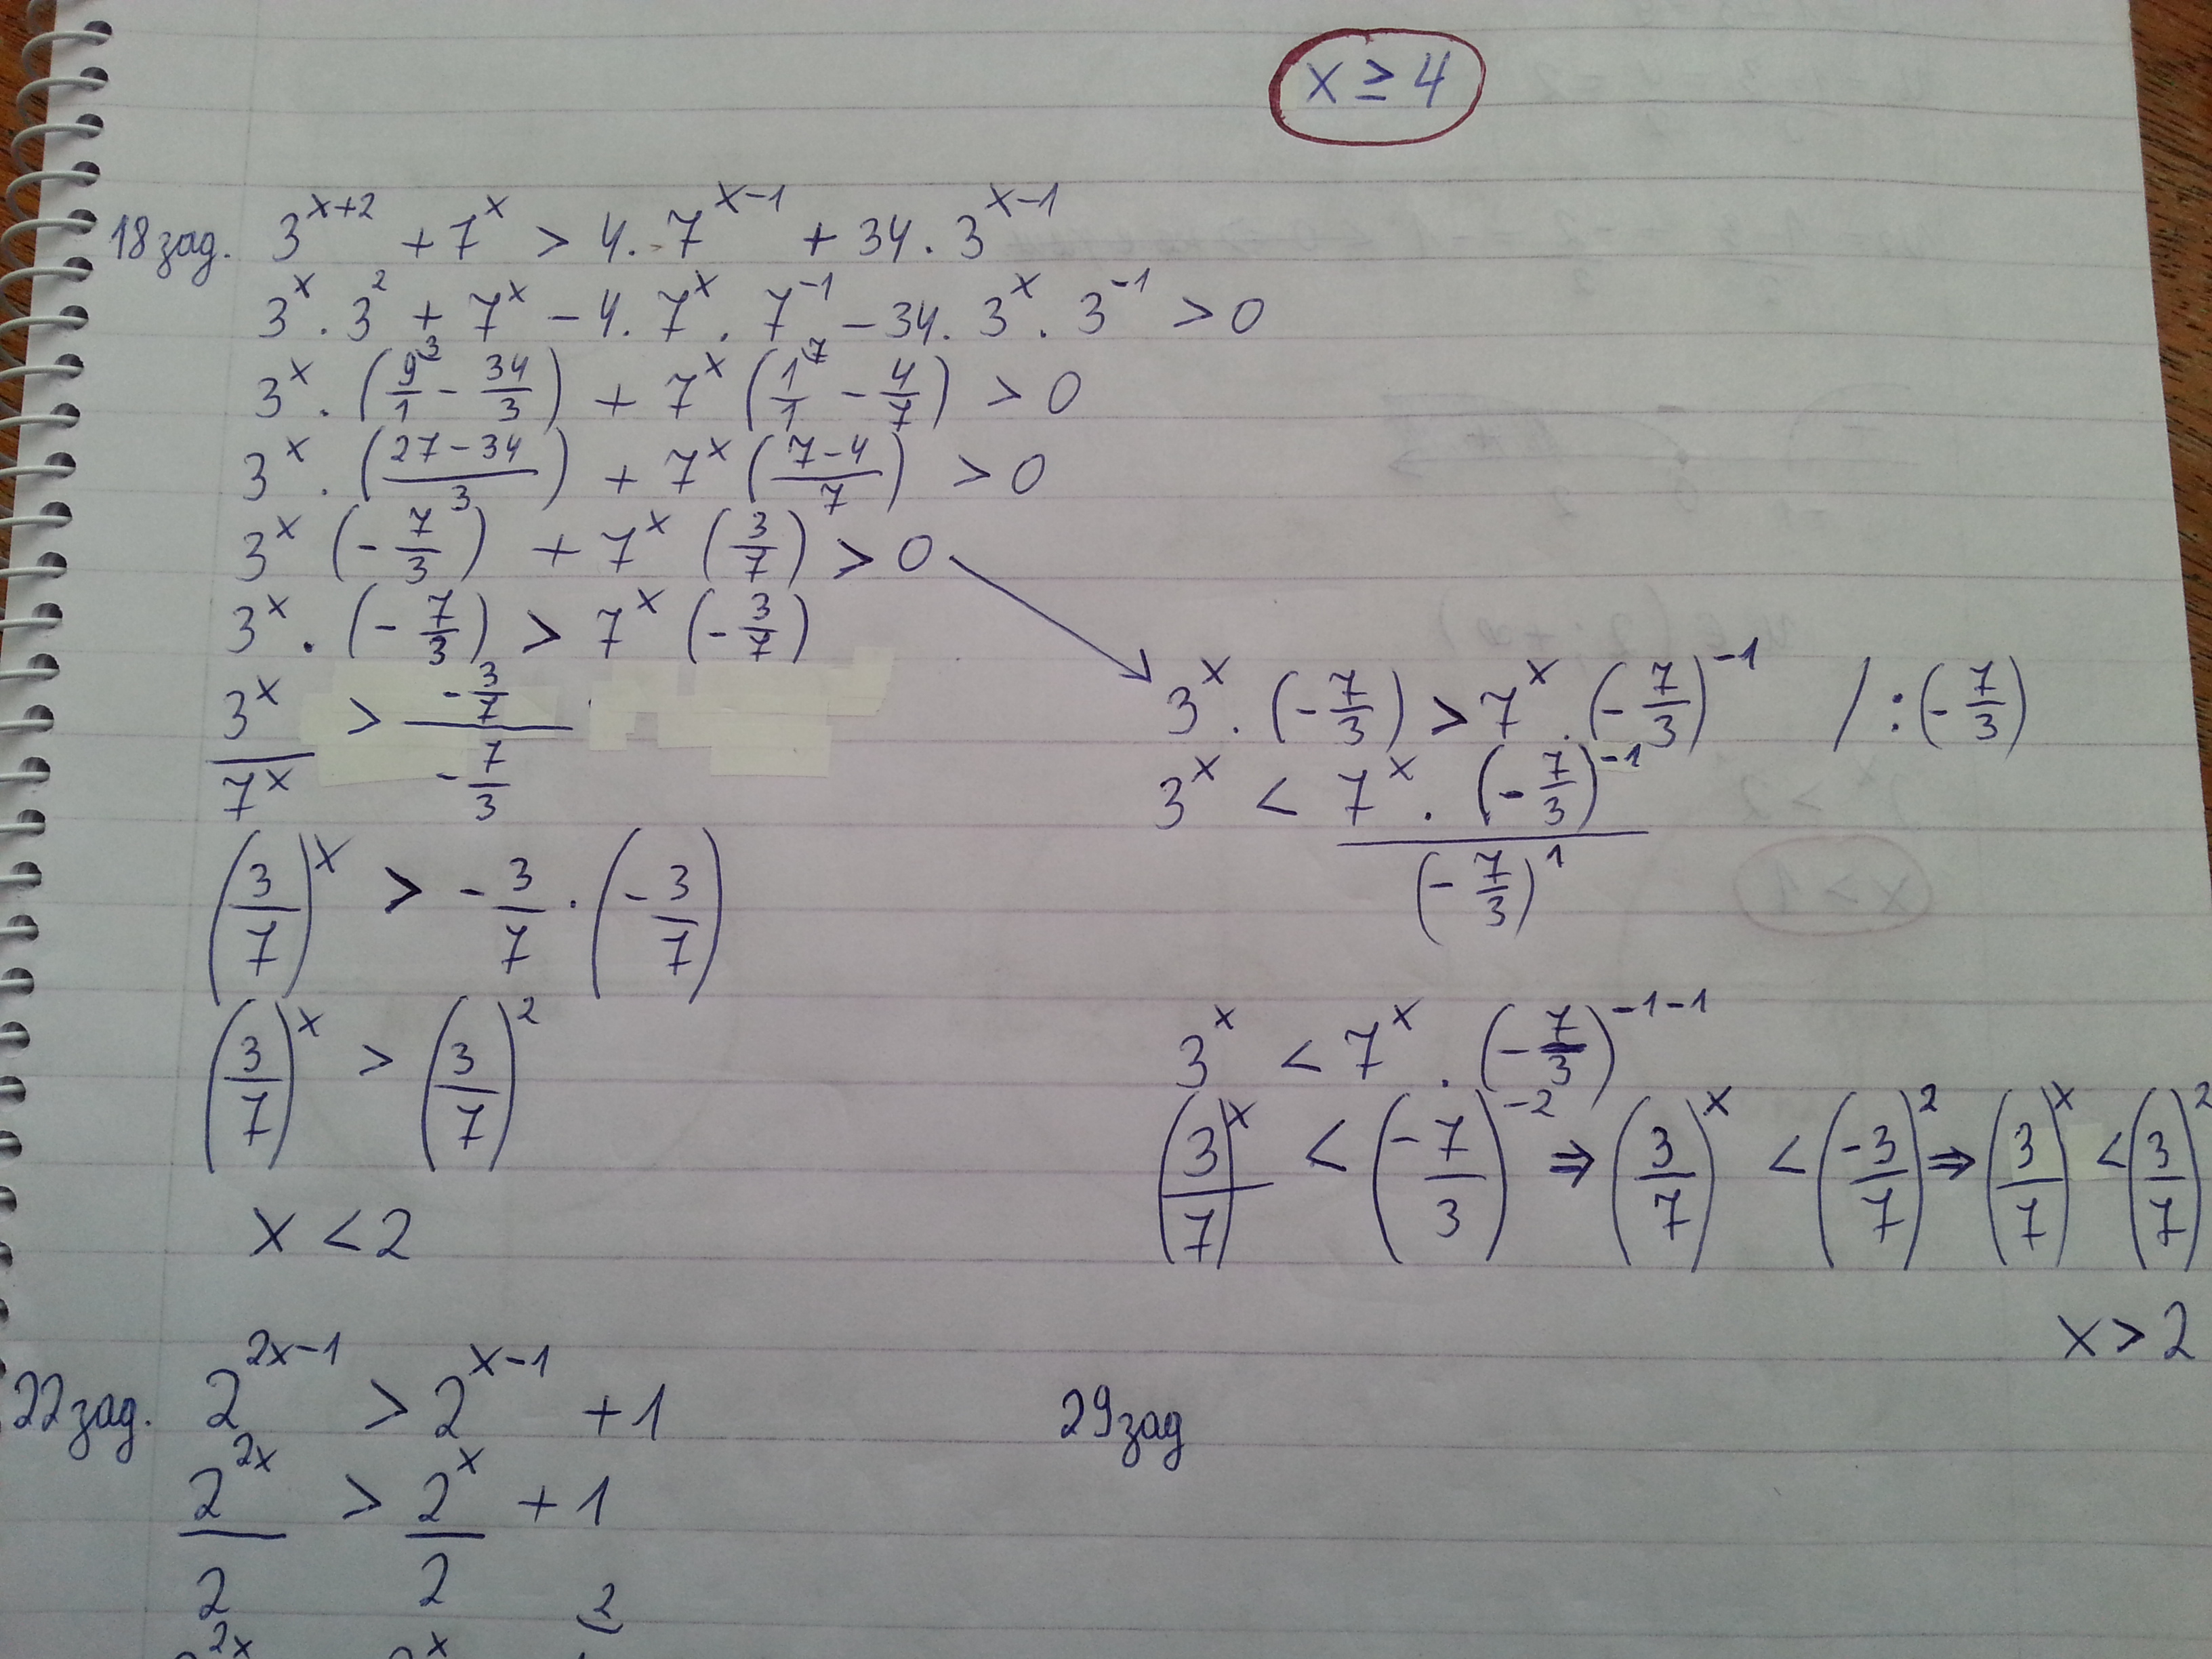 x ≥ 4
18 зад. 3^(x+2) + 7^x > 4 . 7^(x-1) + 34 . 3^(x-1)
3^x . 3^2 + 7^x - 4 . 7^x . 7^(-1) - 34 . 3^x . 3^(-1) > 0
3^x . (9/1^3 - 34/3) + 7^x (1/1^7 - 4/7) > 0
3^x . ((27-34)/3) + 7^x ((7-4)/7) > 0
3^x (-7/3) + 7^x (3/7) > 0
3^x . (-7/3) > 7^x (-3/7)
3^x/7^x > (-3/7)/(-7/3)
(3/7)^x > -3/7 . (-3/7)
(3/7)^x > (3/7)^2
x < 2
3^x . (-7/3) > 7^x . (-7/3)^(-1) / : (-7/3)
3^x < (7^x . (-7/3)^(-1))/(-7/3)^1
3^x < 7^x . (-7/3)^(-1-1)
(3/7)^x < (-7/3)^(-2) ⇒ (3/7)^x < (-3/7)^2 ⇒ (3/7)^x < (3/7)^2
x > 2
22 зад. 2^(2x-1) > 2^(x-1) + 1
2^(2x)/2 > 2^x/2 + 1
2
29 зад